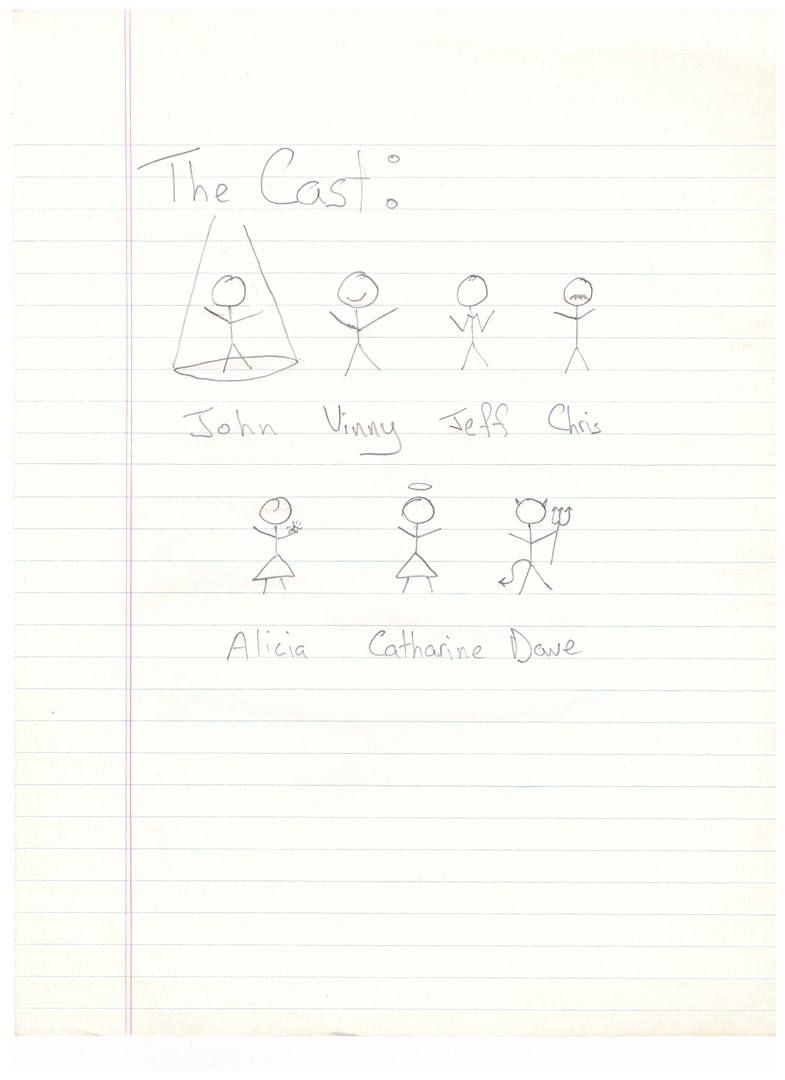 The Cast:
John Vinny Jeff Chris
Alicia Catharine Dave